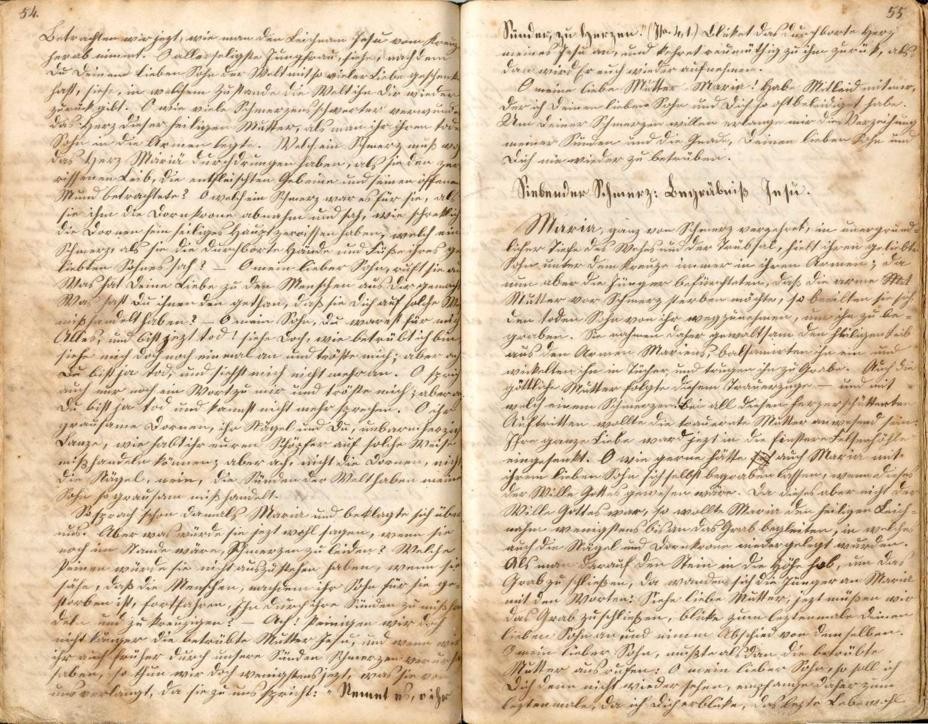 54.
Betrachten wir jetzt, wie man den Leichnam Jesu vom Kreuz
herab nimmt. O allerseligste Jungfrau, siehe, nachdem
Du Deinen lieben Sohn der Welt mit so vieler Liebe geschenk
hast, siehe, in welchem Zustande die Welt ihn Dir wieder
zurück gibt. O wie viele Schmerzensschwerter verwunde
das Herz dieser heiligen Mutter, als man ihr ihren tod
Sohn in die Armen legte. Welch ein Schmerz muß
das Herz Mariä durchdrungen haben, als sie den zer
rissenen Leib, die entfleischten Gebeine und seinen offenen
Mund betrachtete? O welch ein Schmerz war es für sie, als
sie ihm die Dornkrone abnahm und sah, wie schreklich
die Dornen sein heiliges Haupt zerrissen haben, welch ein
Schmerz, als sie die durchbohrte Hände und Füße ihres ge
liebten Sohnes sah? — O mein lieber Sohn, ruft sie
Was hat Deine Liebe zu den Menschen aus dir gemach
Was hast Du ihnen denn gethan, daß sie Dich auf solche
mißhandelt haben? — O mein Sohn, du warest für mich
Alles, und bist jezt tod! siehe doch, wie betrübt ich bin
siehe mich doch noch einmal an und tröste mich; aber ach
Du bist ja tod, und siehst mich nicht mehr an. O sprich
auch nur noch ein Wort zu mir und tröste mich; aber
Du bist ja tod und kannst nicht mehr sprechen. O ihr
grausame Dornen, ihr Nägel und Du, unbarmherzige
Lanze, wie habt ihr euren Schöpfer auf solche Weise
mißhandeln können; aber ach, nicht die Dornen, nicht
die Nägel, nein, die Sünden der Welt haben meinen
Sohn so grausam mißhandelt.
So sprach schon damals Maria und beklagte sich über
uns. Aber was würde sie jezt wohl sagen, wenn sie
noch im Stande wäre, Schmerzen zu leiden? Welche
Peinen würde sie nicht auszustehen haben, wenn sie
sähe, daß die Menschen, nachdem ihr Sohn für sie ge
storben ist, fortfahren, ihn durch ihre Sünden zu mißhan
deln und zu kreuzigen? — Ach! peinigen wir doch
nicht länger die betrübte Mutter Jesu, und wenn wir
ihr auch früher durch unsere Sünden Schmerzen
haben, so thun wir doch wenigstens jezt, was sie von
uns verlangt, da sie zu uns spricht: "Nemet es, o ihr
55
Sünder, zu Herzen." Bliket das durchborte Herz
meines Jesu an, und kehret reumüthig zu ihm zurük, als
dan wird Er euch wieder aufnehmen.
O meine liebe Mutter Maria! Habe Mitleid mit mir,
der ich Deinen lieben Sohn und Dich so oft beleidiget habe.
Um deiner Schmerzen willen erlange mir die Verzeihung
meiner Sünden und die Gnade, Deinen lieben Sohn und
Dich nie wieder zu betrüben.
Siebender Schmerz: Begräbniß Jesu.
Maria, ganz von Schmerz verzehret, in unergründ
licher Tiefe des Wehes und der Trübsal, hielt ihren geliebten
Sohn unter dem Kreuze immer in ihren Armen; da
nun aber die Jünger befürchteten, daß die arme
Mutter vor Schmerz sterben möchte, so beeilten sie sich,
den toden Sohn von ihr wegzunehmen, und ihn zu be
graben. Sie nahmen daher gewaltsam den heiligen Leib
aus den Armen Mariens, balsamirten ihn ein und
wickelten ihn in Tücher, und trugen ihn zu Grabe. Auch die
göttliche Mutter folgte diesem Trauerzuge — und mit
welch einem Schmerzen! Bei all diesen herzerschütternden
Auftritten wollte die trauernde Mutter anwesend sein.
Ihre ganze Liebe ward jezt in die finstere Felsenhöhle
eingesenkt. O wie gerne hätte sich auch Maria mit
ihrem lieben Sohn sich selbst begraben lassen, wenn dieses
der Wille Gottes gewesen wäre. Da dieses aber nicht der
Wille Gottes war, so wollte Maria den heiligen Leich-
nahm wenigstens bis an das Grab begleiten, in welches
auch die Nägel und Dornkrone niedergelegt wurden.
Als man darauf den Stein in die Höhe hob, um das
Grab zu schließen, da wandten sich die Jünger an Maria
mit den Worten: Siehe liebe Mutter, jezt müßen wir
das Grab zuschließen, blike zum leztenmale Deinen
lieben Sohn an und nimm Abschied von demselben.
O mein lieber Sohn, mußte alsdan die betrübte
Mutter ausrufen: O mein lieber Sohn, so soll ich
Dich denn nicht wieder sehen, empfange daher zum
leztenmale, da ich Dich erblike, das lezte Lebewohl